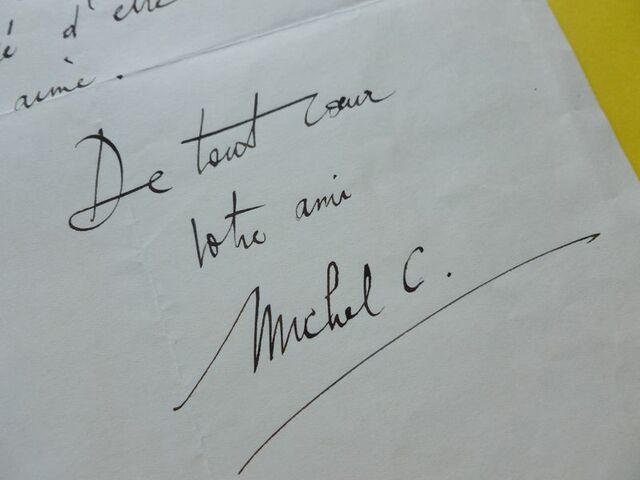 é d'être
aimé.
De tout cœur
votre ami
Michel C.